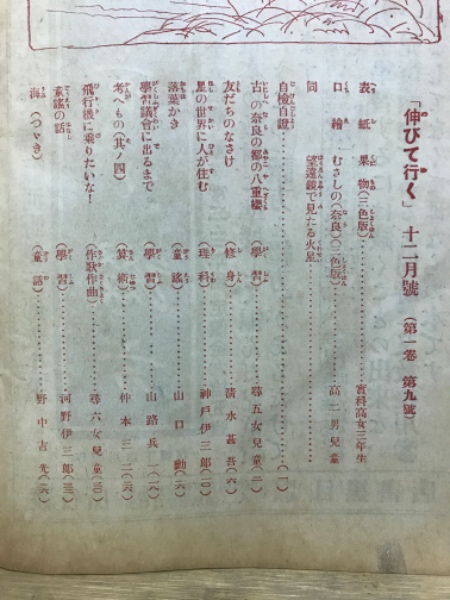 「伸びて行く」 十二月號 (第一卷 第九號)
表紙 果物(三色版)………實科高女三年生
口繪 むさしの(奈良)(二色版)………高二男兒童
同 望遠鏡で見たる火星………
自檢自證………(一)
古への奈良の都の八重櫻 (學習)………尋五女兒童(二)
友だちのなさけ (修身)………清水甚吾(六)
星の世界に人が住む (理科)………神戸伊三郎(一〇)
落葉かき (童謠)………山口勳(一六)
學習議會に出るまで (學習)………山路兵一(一八)
考へもの(其ノ四) (算術)………仲本三二(二六)
飛行機に乘りたいな! (作歌作曲)………尋六女兒童(三〇)
童謠の話 (學習)………河野伊三郎(三三)
海(つゞき) (童話)………野中吉光(三六)